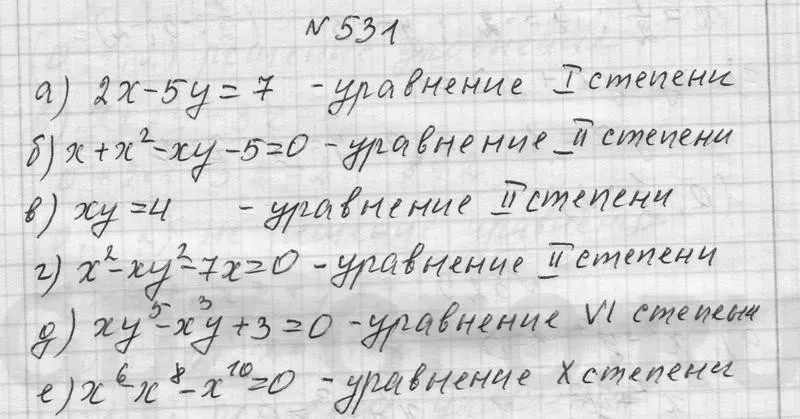 №531
а) 2x-5y=7 - уравнение I степени
б) x+x²-xy-5=0 - уравнение II степени
в) xy=4 - уравнение II степени
г) x²-xy²-7x=0 - уравнение II степени
д) xy⁵-x³y+3=0 - уравнение VI степени
е) x⁶-x⁸-x¹⁰=0 - уравнение X степени